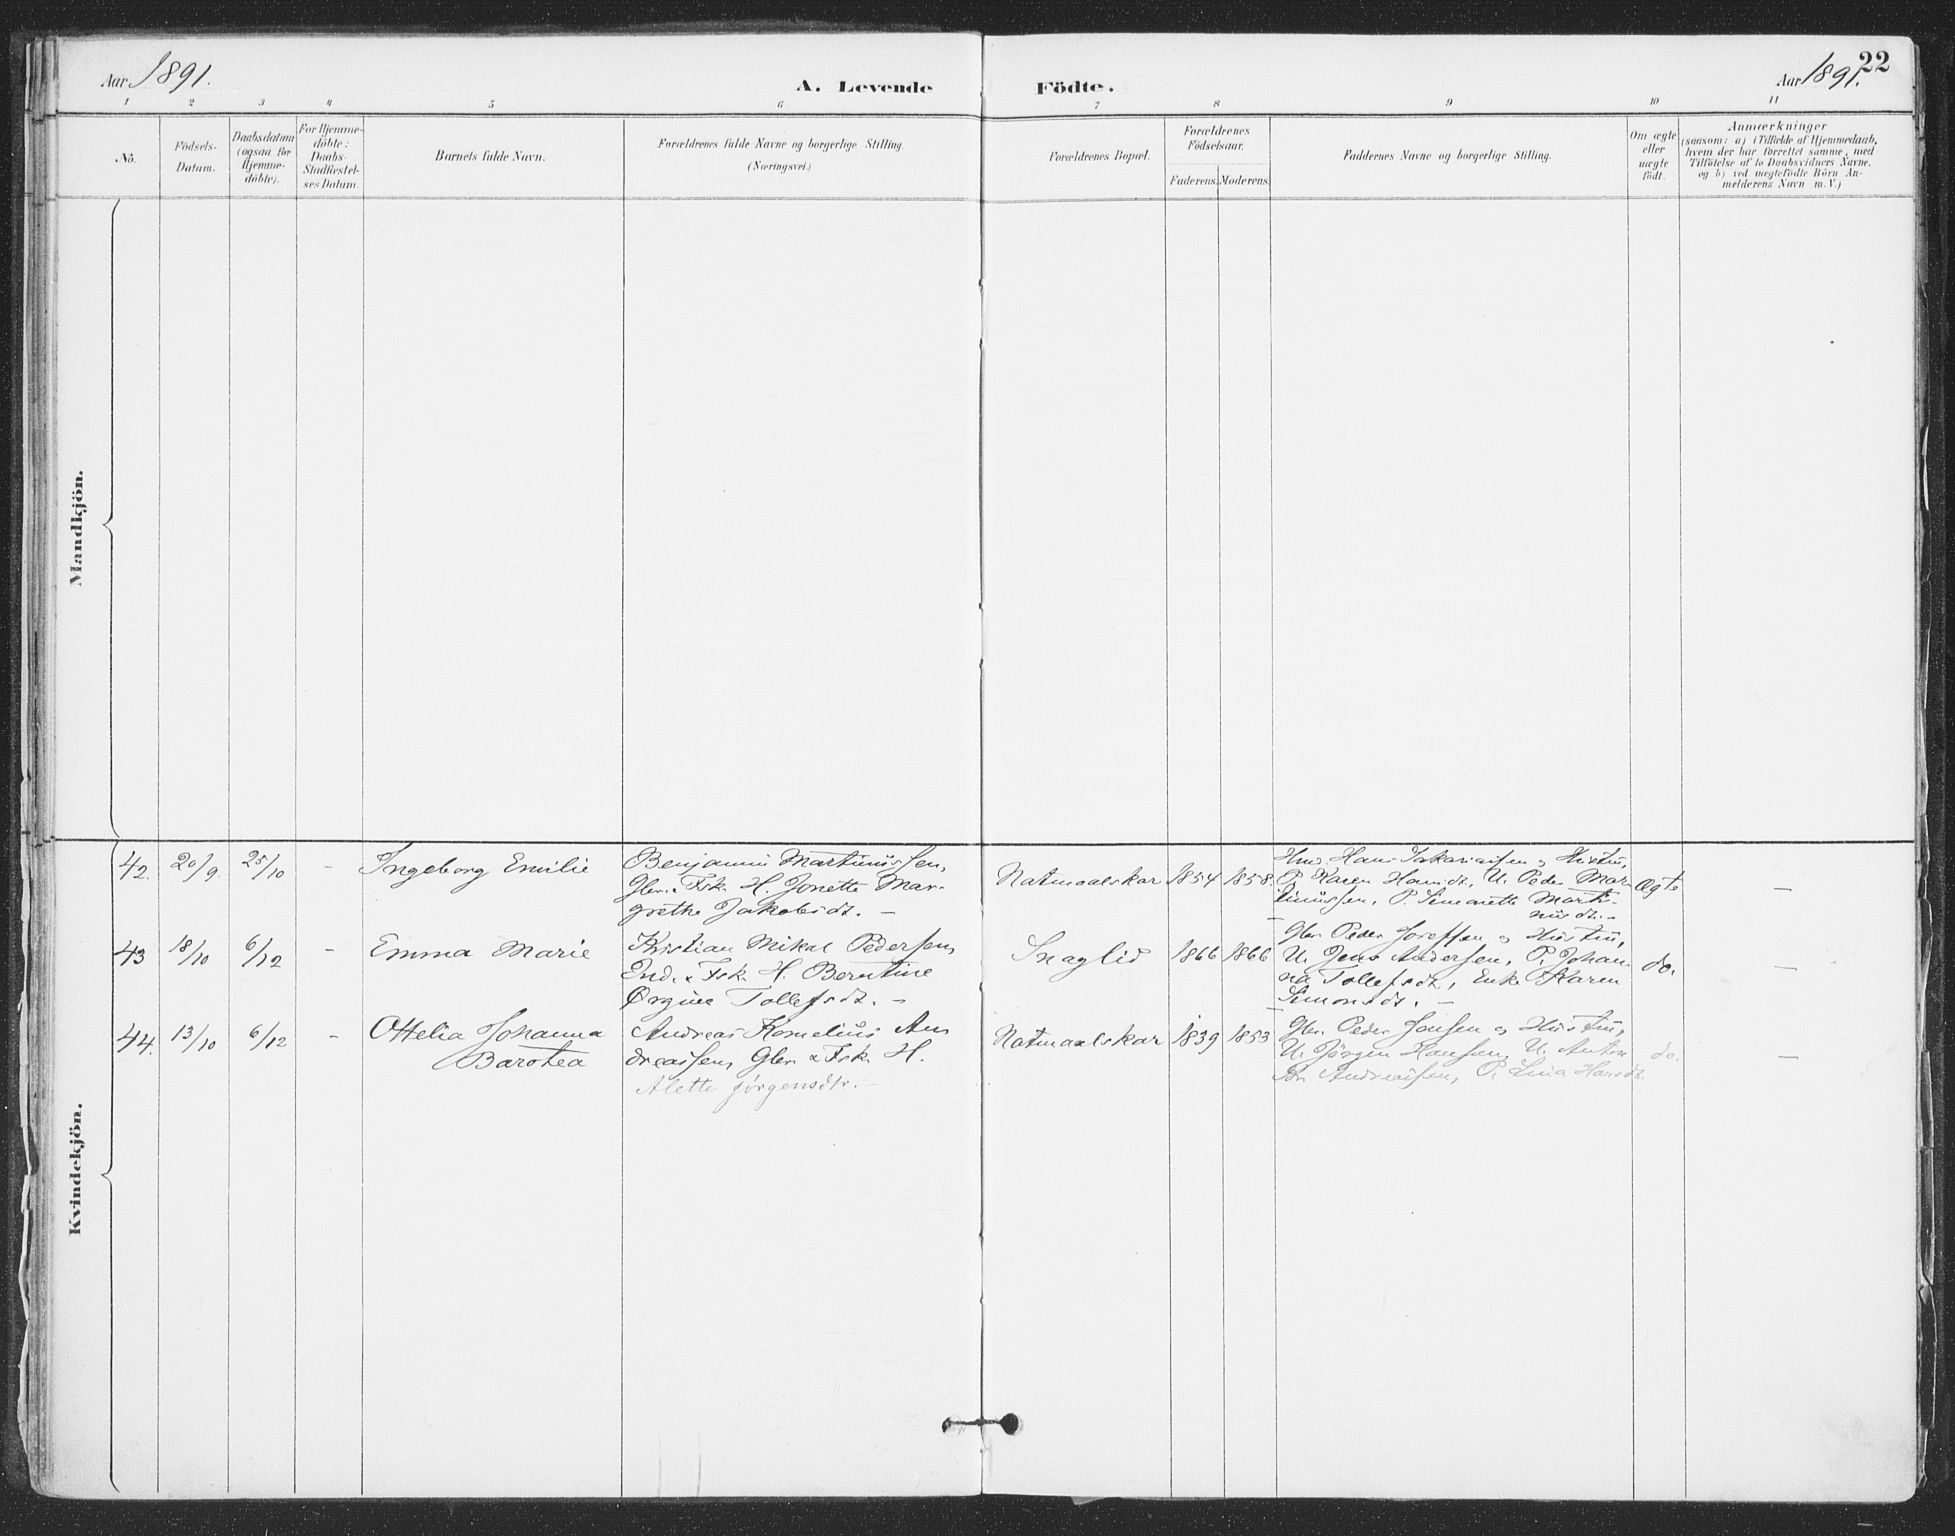 Aar 1891.
A. Levende Födte.
Aar 1891.
22
1 2 3 4 5 6 7 8 9 10 11
Nö.
Födsels-
Datum.
Daabsdatum
(ogsaa for
Hjemme-
döbte).
For Hjemme-
döbte:
Daabs-
Stadfæstel-
ses Datum.
Barnets fulde Navn.
Forældrenes fulde Navne og borgerlige Stilling.
(Næringsvei.)
Forældrenes Bopæl.
Forældrenes
Födselsaar.
Faderens.
Moderens.
Faddernes Navne og borgerlige Stilling.
Om ægte
eller
uægte
födt.
Anmærkninger
(saasom: a) i Tilfælde af Hjemmedaab,
hvem der har forrettet samme, med
Tilföielse af to Daabsvidners Navne.
og b) ved uægtefödte Börn An-
melderens Navn m. V.)
Mandkjön.
Kvindekjön.
42. 20/9 25/10 - Ingeborg Emilie
Benjamin Martinussen,
Gbr. & Fsk. H. Jonette Mar-
grethe Jakobsdt. -
Natmaalskar 1854 1858.
Hans Sakariassen og Hustru,
P. Karen Hansdt., U. Peder Mar-
tinussen, P. Simonette Marti-
nusdt. -
Ægte -
43 18/10 6/12 - Emma Marie
Kristian Mikal Pedersen,
Ind. & Fsk. H. Berntine
Ørgine Tollefsdt. -
Snaglid 1866 1866
Gbr. Peder Joseffsen og Hustru,
U. Jens Andersen, P. Johan-
na Tollefsdt., Enke Karen
Simonsdt. -
do. -
44. 13/10 6/12 - Ottelia Johanna
Barotea
Andreas Kornelius An
dreassen, Gbr. & Fsk. H.
Alette Jørgensdtr. -
Natmaalskar 1839 1853
Gbr. Peder Jensen og Hustru,
U. Jørgen Hansen, U. Anton
Andreassen, P. Lina Hansdt.
do. -